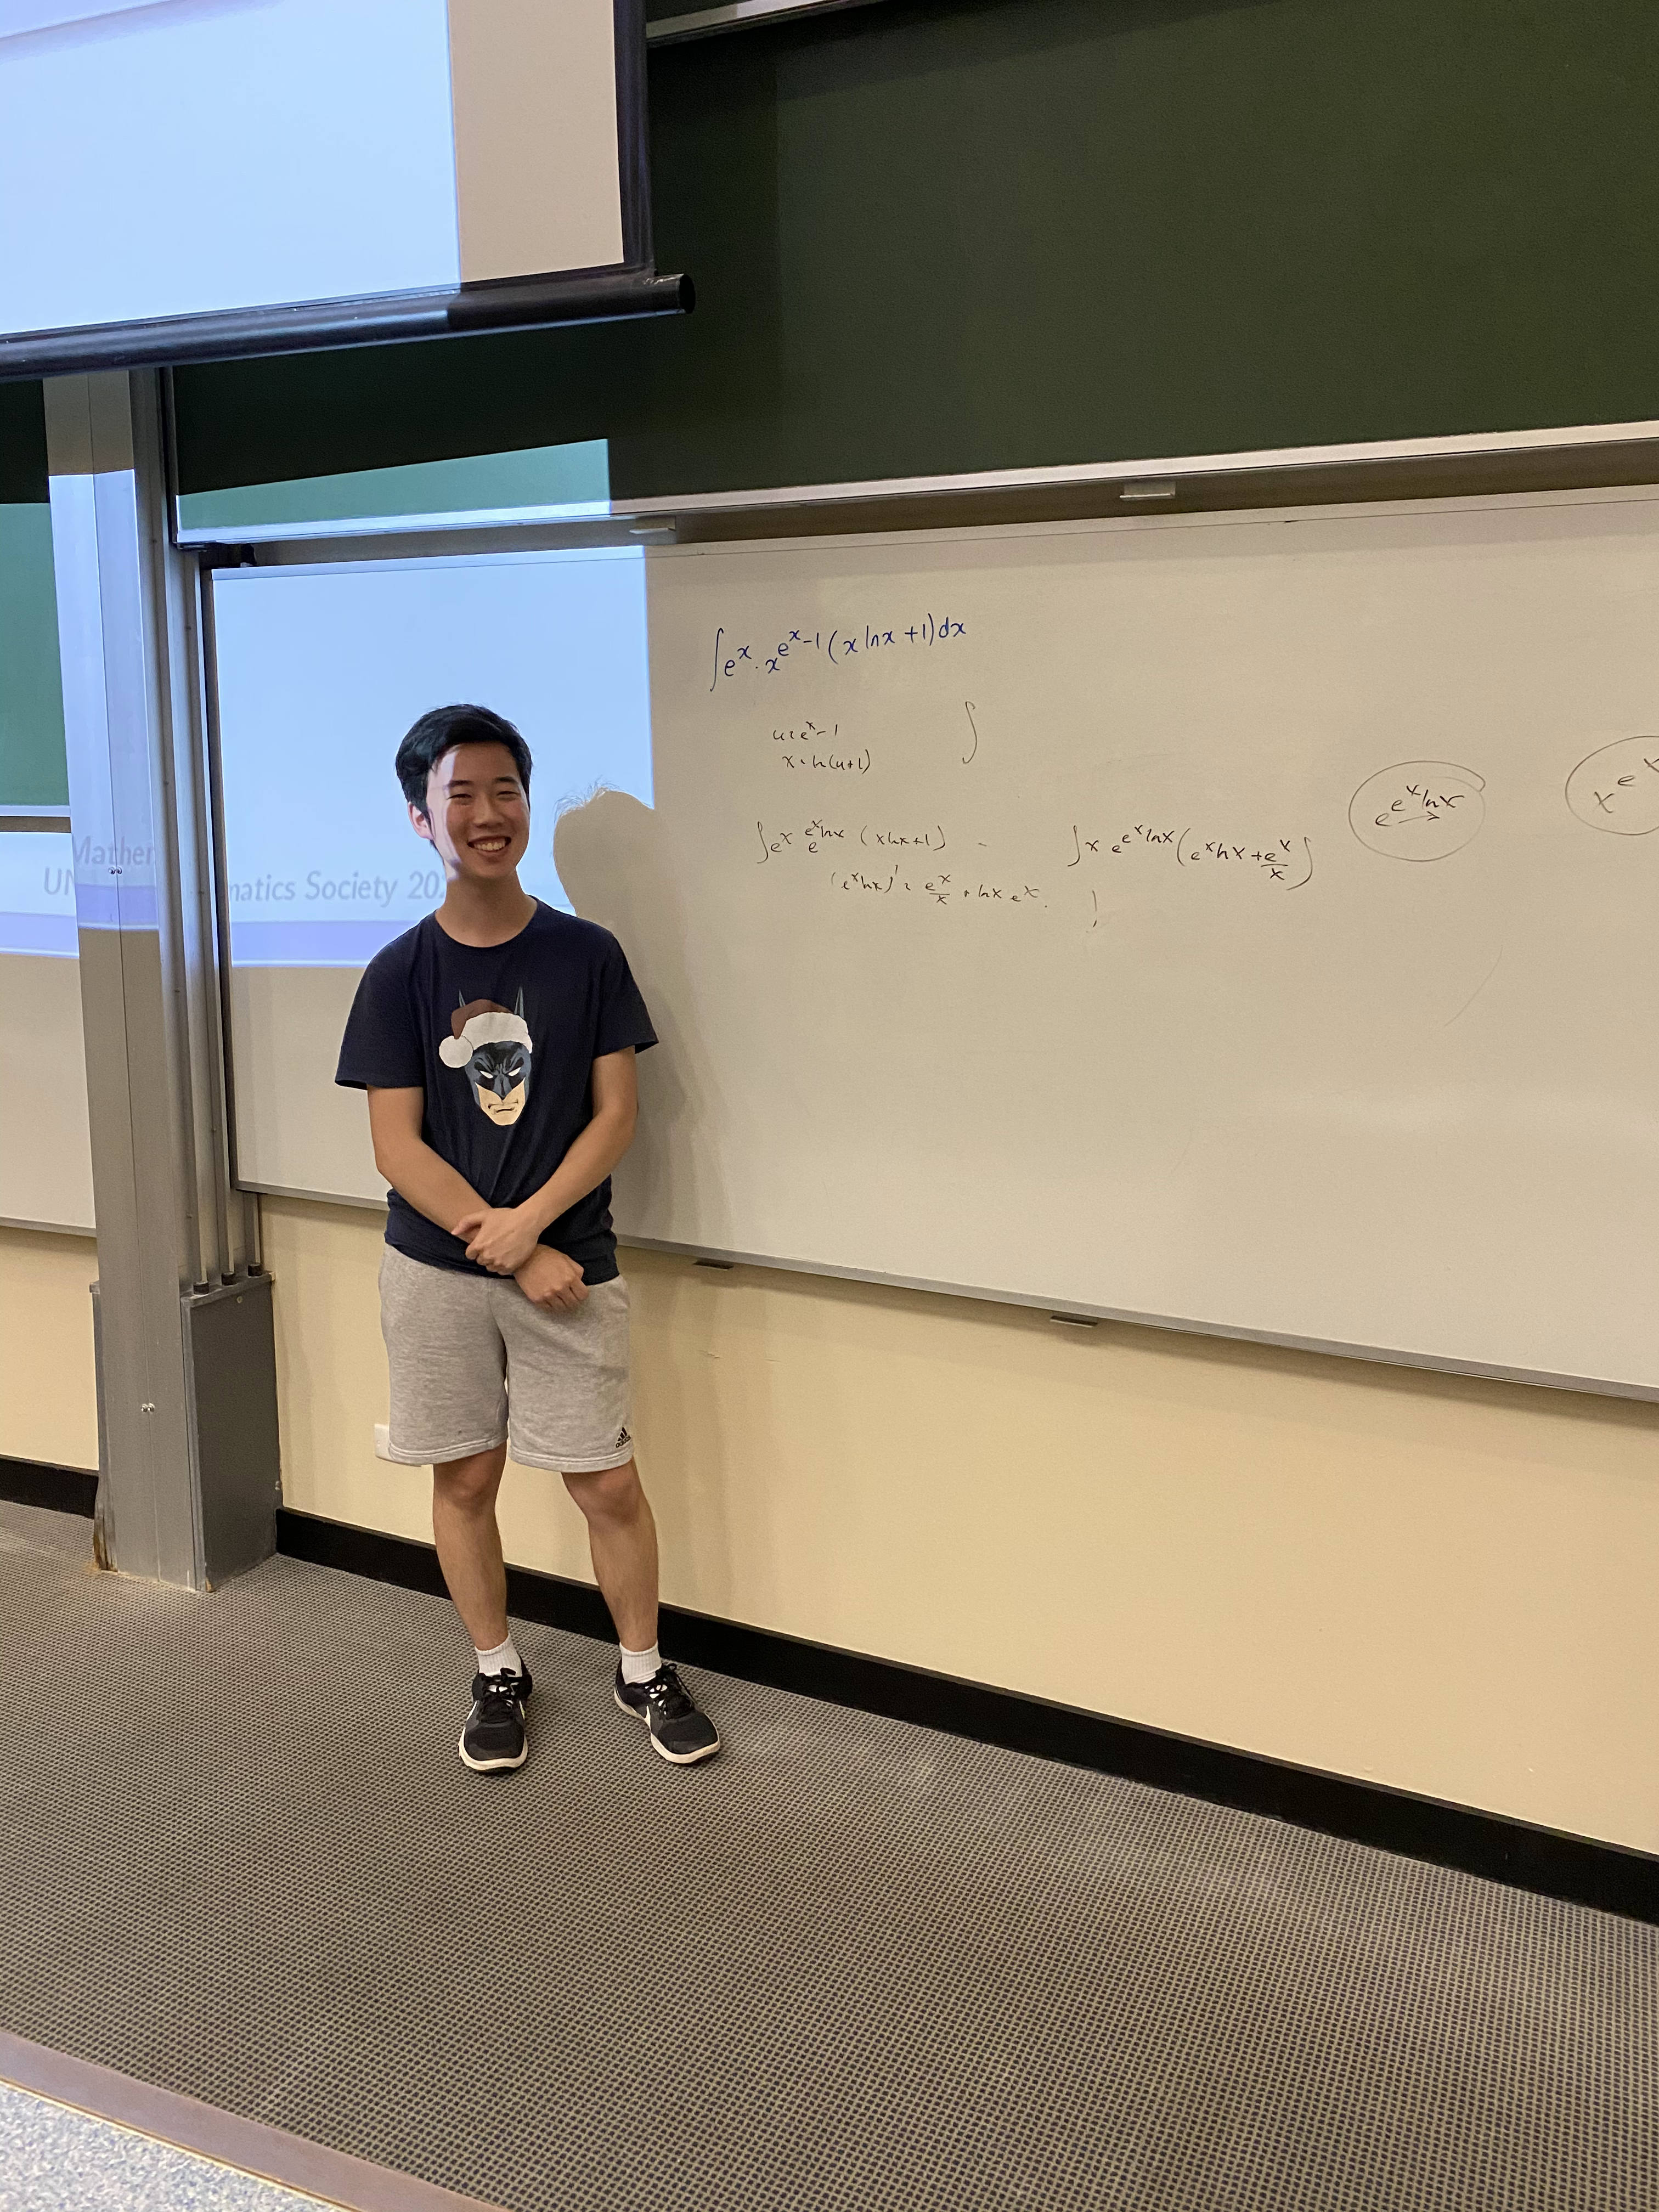 ∫eˣ·x^(eˣ-1) (x lnx +1)dx
u=eˣ-1
x=ln(u+1)
∫
∫eˣ e^(eˣlnx) (xlnx+1) =
∫x e^(eˣlnx) (eˣlnx + eˣ/x)
(eˣlnx)' = eˣ/x + lnx eˣ.
e^(eˣlnx)
x^(eˣ
Mathematics Society 20
UN
adidas